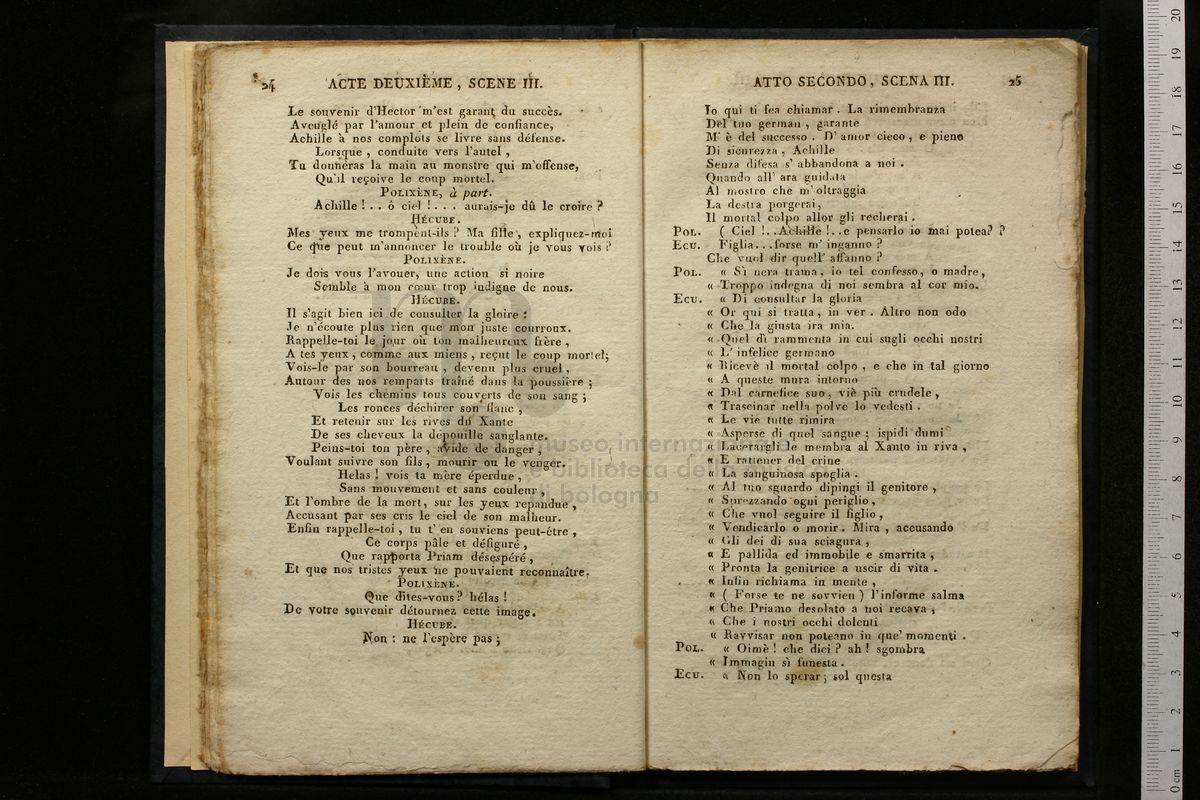 24
ACTE DEUXIÈME , SCENE III.
Le souvenir d'Hector m'est garant du succès.
Aveuglé par l'amour et plein de confiance,
Achille à nos complots se livre sans défense.
Lorsque , conduite vers l'autel ,
Tu donneras la main au monstre qui m'offense,
Qu'il reçoive le coup mortel.
POLIXÈNE, à part.
Achille ! . . ô ciel ! . . . aurais-je dû le croire ?
HÉCUBE.
Mes yeux me trompent-ils ? Ma fille , expliquez-moi
Ce que peut m'annoncer le trouble où je vous vois ?
POLIXÈNE.
Je dois vous l'avouer, une action si noire
Semble à mon cœur trop indigne de nous.
HÉCUBE.
Il s'agit bien ici de consulter la gloire :
Je n'écoute plus rien que mon juste courroux.
Rappelle-toi le jour où ton malheureux frère ,
A tes yeux , comme aux miens , reçut le coup mortel;
Vois-le par son bourreau , devenu plus cruel ,
Autour des nos remparts traîné dans la poussière ;
Vois les chemins tous couverts de son sang ;
Les ronces déchirer son flanc ,
Et retenir sur les rives du Xante
De ses cheveux la dépouille sanglante.
Peins-toi ton père , avide de danger ,
Voulant suivre son fils , mourir ou le venger.
Helas ! vois ta mère éperdue ,
Sans mouvement et sans couleur ,
Et l'ombre de la mort, sur les yeux repandue ,
Accusant par ses cris le ciel de son malheur.
Enfin rappelle-toi , tu t' en souviens peut-être ,
Ce corps pâle et défiguré ,
Que rapporta Priam désespéré ,
Et que nos tristes yeux ne pouvaient reconnaître.
POLIXÈNE.
Que dites-vous ? hélas !
De votre souvenir détournez cette image.
HÉCUBE.
Non : ne l'espère pas ;
ATTO SECONDO , SCENA III.
25
Io qui ti fea chiamar . La rimembranza
Del tuo german , garante
M' è del successo . D' amor cieco , e pieno
Di sicurezza , Achille
Senza difesa s' abbandona a noi .
Quando all' ara guidata
Al mostro che m' oltraggia
La destra porgerai,
Il mortal colpo allor gli recherai .
POL. ( Ciel ! . . Achille ! . . e pensarlo io mai potea? ?
ECU. Figlia . . . forse m' inganno ?
Che vuol dir quell' affanno ?
POL. « Sì nera trama , io tel confesso, o madre,
« Troppo indegna di noi sembra al cor mio.
ECU. « Di consultar la gloria
« Or qui si tratta , in ver . Altro non odo
« Che la giusta ira mia.
« Quel dì rammenta in cui sugli occhi nostri
« L' infelice germano
« Ricevè il mortal colpo , e che in tal giorno
« A queste mura intorno
« Dal carnefice suo , viè più crudele ,
« Trascinar nella polve lo vedesti .
« Le vie tutte rimira
« Asperse di quel sangue ; ispidi dumi
« Lacerargli le membra al Xanto in riva ,
« E rattener del crine
« La sanguinosa spoglia .
« Al tuo sguardo dipingi il genitore ,
« Sprezzando ogni periglio ,
« Che vuol seguire il figlio ,
« Vendicarlo o morir . Mira , accusando
« Gli dei di sua sciagura ,
« E pallida ed immobile e smarrita ,
« Pronta la genitrice a uscir di vita .
« Infin richiama in mente ,
« ( Forse te ne sovvien ) l'informe salma
« Che Priamo desolato a noi recava ,
« Che i nostri occhi dolenti
« Ravvisar non poteano in que' momenti .
POL. « Oimè ! che dici ? ah ! sgombra
« Immagin sì funesta .
ECU. « Non lo sperar ; sol questa
museo internaz
biblioteca de
di bologna
0 cm 1 2 3 4 5 6 7 8 9 10 11 12 13 14 15 16 17 18 19 20